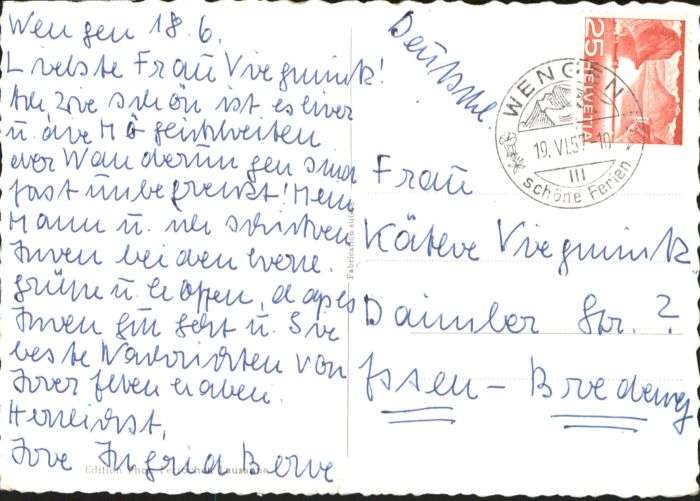 Wengen 18. 6.
Liebste Frau Viegminck!
Ach wie schön ist es hier
u. die Möglichkeiten
der Wanderungen sind
fast unbegrenzt! Mein
Mann u. ich schicken
Ihnen beiden herzl.
Grüße u. hoffen, daß es
Ihnen gut geht u. Sie
beste Nachrichten von
Ihrer haben.
Herzlichst,
Ihre Ingrid
Deutschl.
25
HELVETIA
WENGEN
19. VI. 57 - 10
III
schöne Ferien
Frau
Käthe Viegminck
Daimler Str. ?
Essen - Bredeney